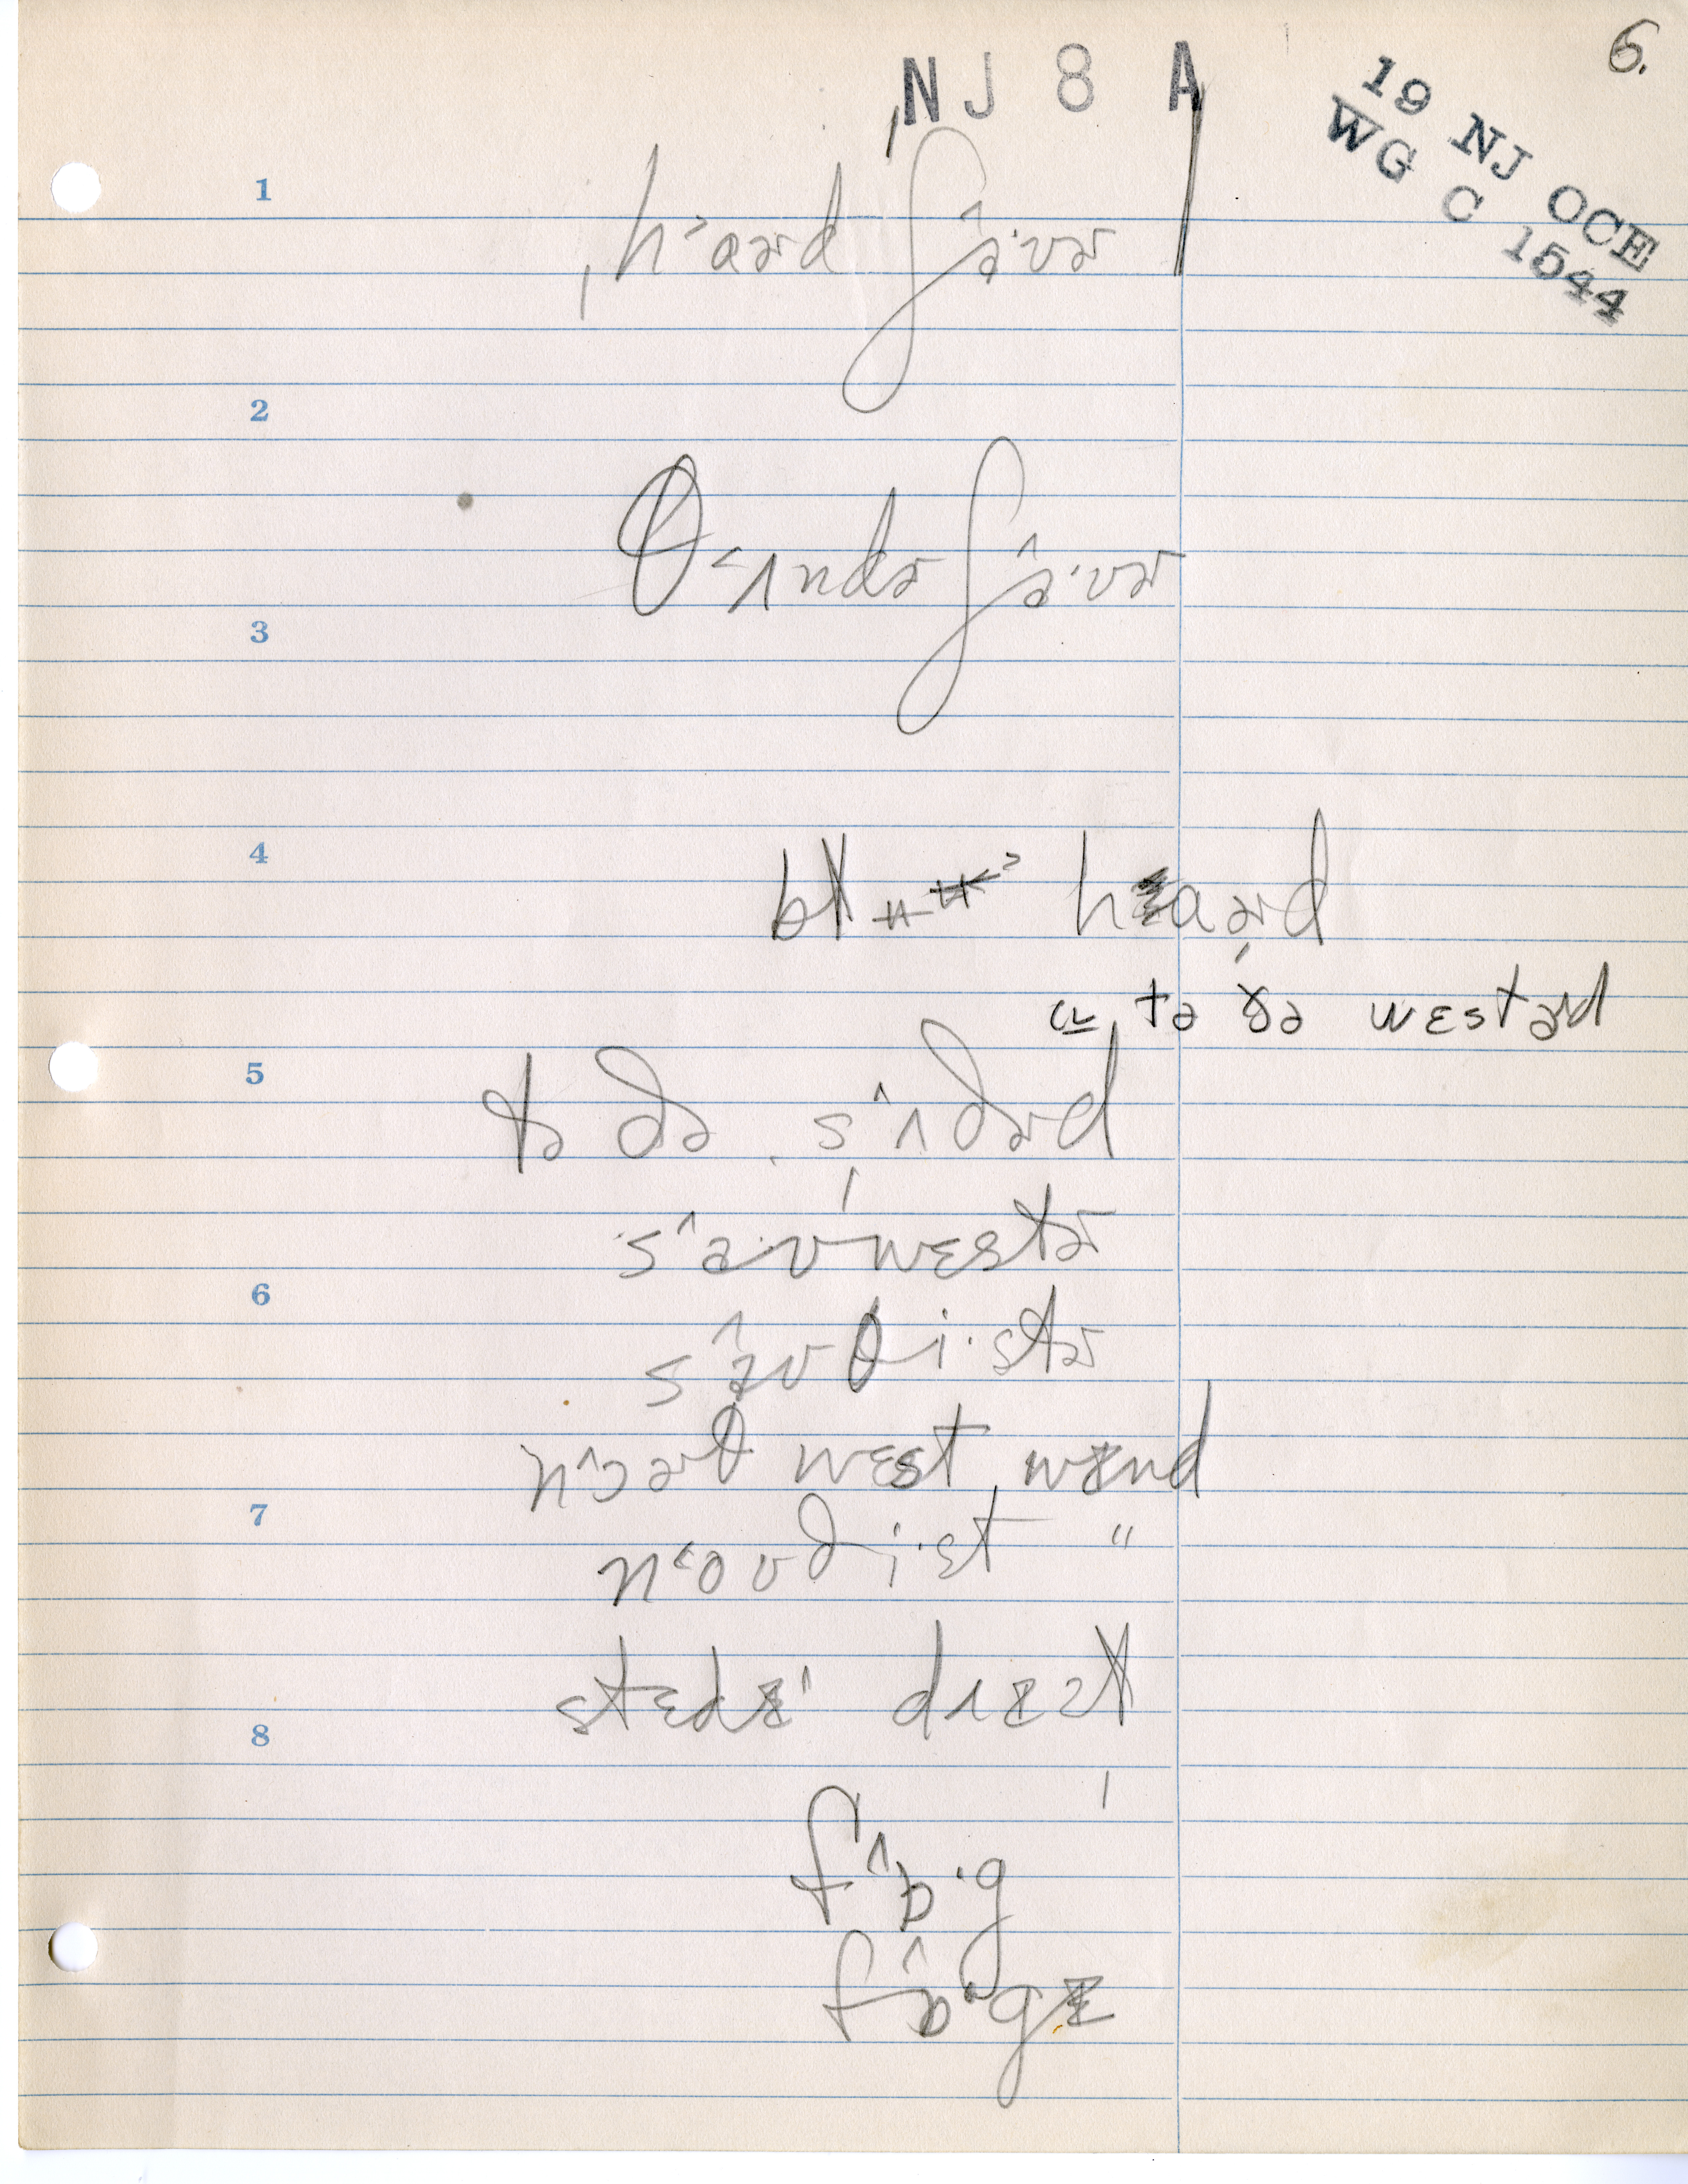 6.
NJ 8 A
19 NJ OCE
WG C 1544
1
ˌh˃aɚd ʃə̂·vɚ
2
θ˂ʌndɚ ʃə̂·vɚ
3
4
haɚd
tə ðə westəɚd
5
tə ðə s^ʌðɚd
s^əʊwɛstɚ
6
s^əʊθi·stɚ
n^ɔɚθ wɛst wɪnd
7
n˂oʊði·st "
stɛdɪ
8
f^ɒ·g
f^ɒ·gɪ